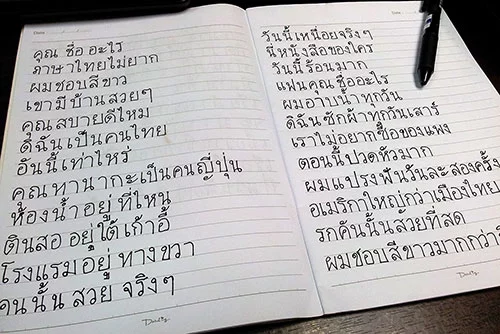 คุณ ชื่อ อะไร
ภาษาไทยไม่ยาก
ผมชอบสีขาว
เขามีบ้านสวยๆ
คุณสบายดีไหม
ดิฉันเป็นคนไทย
อันนี้เท่าไหร่
คุณทานากะเป็นคนญี่ปุ่น
ห้องน้ำอยู่ที่ไหน
ดินสออยู่ใต้เก้าอี้
โรงแรมอยู่ทางขวา
คนนั้นสวยจริงๆ
วันนี้เหนื่อยจริงๆ
นี่หนังสือของใคร
วันนี้ร้อนมาก
แฟนคุณชื่ออะไร
ผมอาบน้ำทุกวัน
ดิฉันซักผ้าทุกวันเสาร์
เราไม่อยากซื้อของแพง
ตอนนี้ปวดหัวมาก
ผมแปรงฟันวันละสองครั้ง
อเมริกาใหญ่กว่าเมืองไทย
รถคันนั้นสวยที่สุด
ผมชอบสีขาวมากกว่า